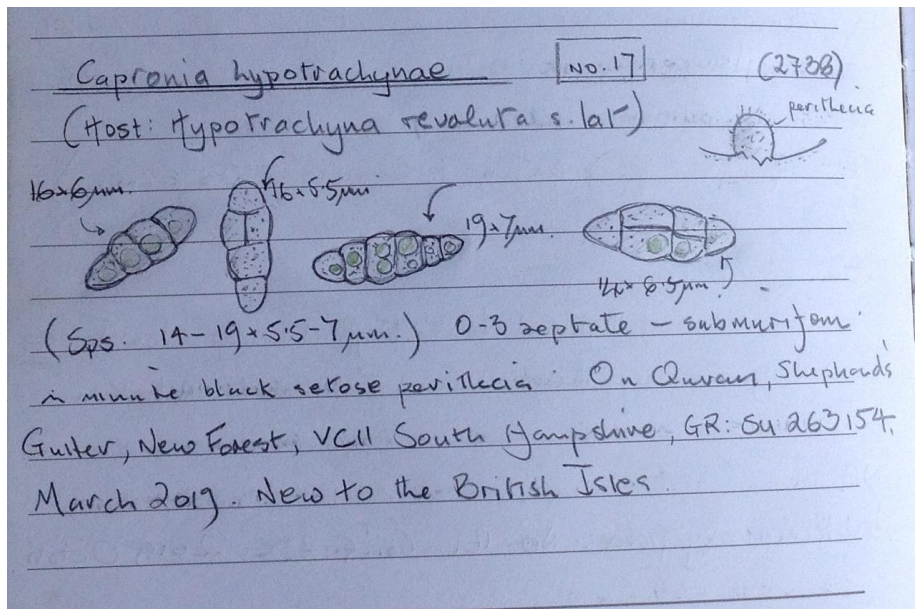 Capronia hypotrachynae NO. 17 (2738)
(Host: Hypotrachyna revoluta s. lat) perithecia
16×6µm. 16×5.5µm
19×7µm.
14×6.5µm.
(Sps. 14-19×5.5-7µm.) 0-3 septate - submuriform
in minute black setose perithecia. On Quercus, Shepherds
Gutter, New Forest, VC11 South Hampshire, GR: SU 263154,
March 2019. New to the British Isles.